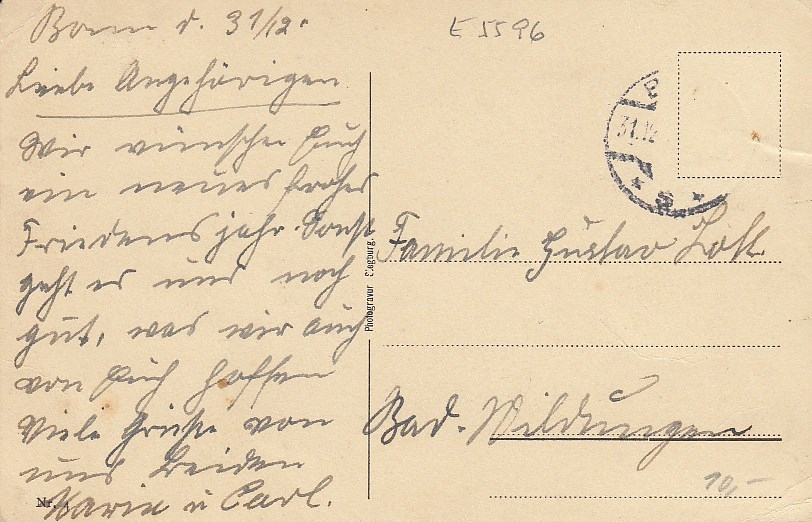 Bonn d. 31/12.
E 5596
Liebe Angehörigen
Wir wünschen Euch
ein neues frohes
Friedensjahr. Sonst
geht es uns noch
gut, was wir auch
von Euch hoffen
Viele Grüße von
uns Beiden
Marie u Carl.
Nr. 4
Photogravur Siegburg.
31.12.
* 5 *
Familie Gustav
Bad-Wildungen
10,-